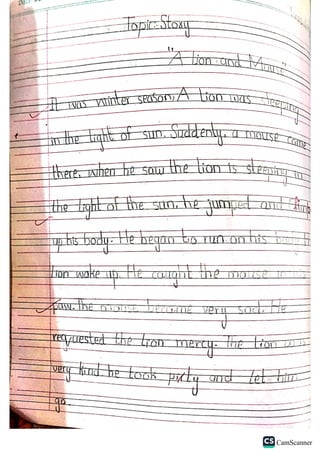 Topic:Story
"A lion and Mouse"
It was winter season. A lion was sleeping
in the light of sun. Suddenly, a mouse came
there, when he saw the lion is sleeping in
the light of the sun, he jumped and
up his body. He began to run on his
lion wake up. He caught the mouse in
paw. The mouse became very sad. He
requested the lion mercy. The lion was
very kind he took pity and let him
go.
CS CamScanner